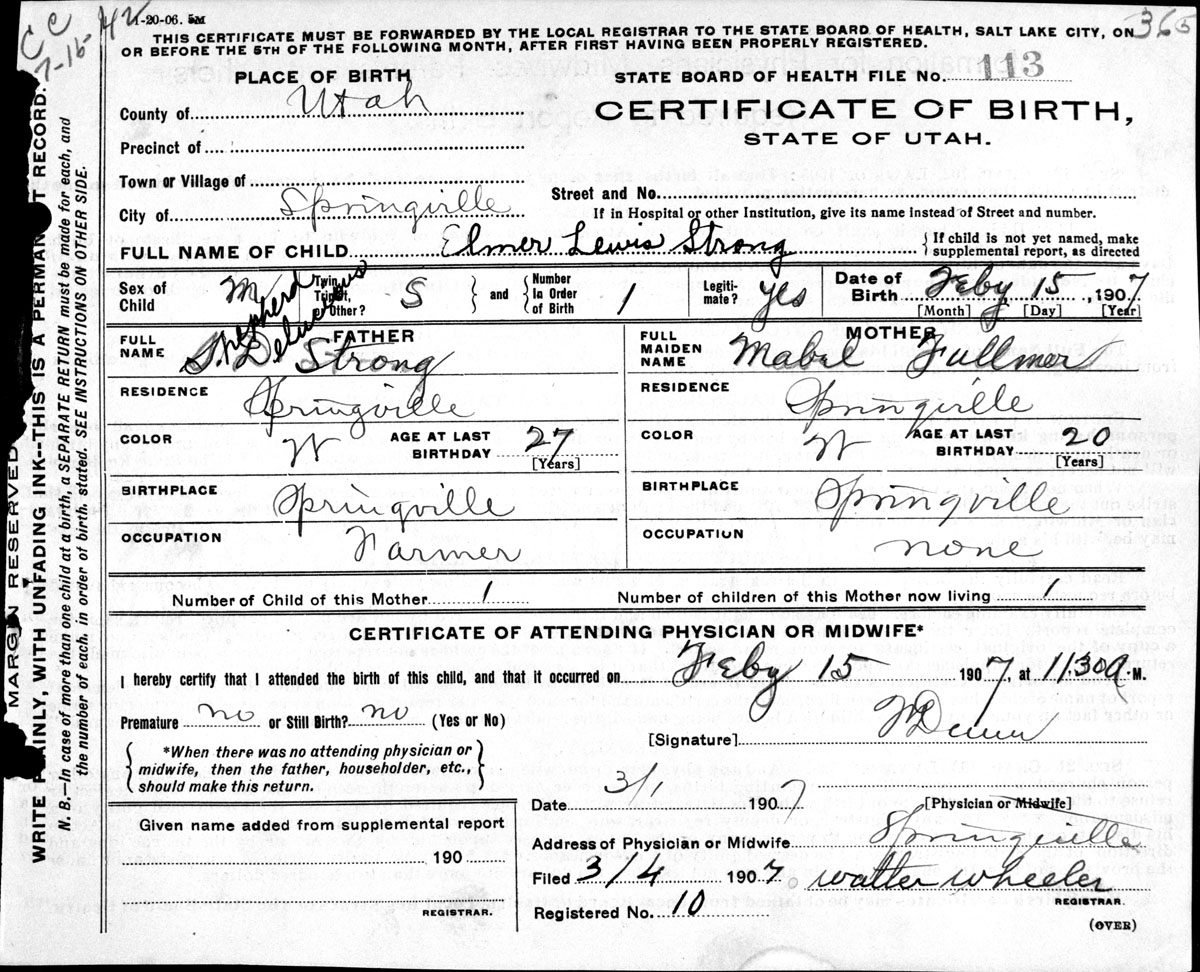 C C 42
7-15
365
1-20-06. 5M
THIS CERTIFICATE MUST BE FORWARDED BY THE LOCAL REGISTRAR TO THE STATE BOARD OF HEALTH, SALT LAKE CITY, ON
OR BEFORE THE 5TH OF THE FOLLOWING MONTH, AFTER FIRST HAVING BEEN PROPERLY REGISTERED.
PLACE OF BIRTH
STATE BOARD OF HEALTH FILE No. 113
County of Utah
CERTIFICATE OF BIRTH,
STATE OF UTAH.
Precinct of
Town or Village of
Street and No.
City of Springville
If in Hospital or other Institution, give its name instead of Street and number.
FULL NAME OF CHILD Elmer Lewis Strong { If child is not yet named, make supplemental report, as directed
Sex of Child M Twin, Triplet, or Other? S } and { Number In Order of Birth 1 Legiti-mate? yes Date of Birth Feby 15, 1907
[Month] [Day] [Year]
FATHER
FULL NAME Shepherd Strong
RESIDENCE Springville
COLOR W AGE AT LAST BIRTHDAY 27
[Years]
BIRTHPLACE Springville
OCCUPATION Farmer
MOTHER
FULL MAIDEN NAME Mabel Fullmer
RESIDENCE Springville
COLOR W AGE AT LAST BIRTHDAY 20
[Years]
BIRTHPLACE Springville
OCCUPATION none
Number of Child of this Mother 1 Number of children of this Mother now living 1
CERTIFICATE OF ATTENDING PHYSICIAN OR MIDWIFE*
I hereby certify that I attended the birth of this child, and that it occurred on Feby 15 1907, at 11.30 a. M.
Premature no or Still Birth? no (Yes or No)
{ *When there was no attending physician or midwife, then the father, householder, etc., should make this return. }
[Signature]
Date 3/ 1907 [Physician or Midwife]
Given name added from supplemental report
190
REGISTRAR.
Address of Physician or Midwife Springville
Filed 3/4 1907 Walter Wheeler
REGISTRAR.
Registered No. 10
(OVER)
MARGIN RESERVED
WRITE PLAINLY, WITH UNFADING INK--THIS IS A PERMANENT RECORD.
N. B.—In case of more than one child at a birth, a SEPARATE RETURN must be made for each, and
the number of each, in order of birth, stated. SEE INSTRUCTIONS ON OTHER SIDE.